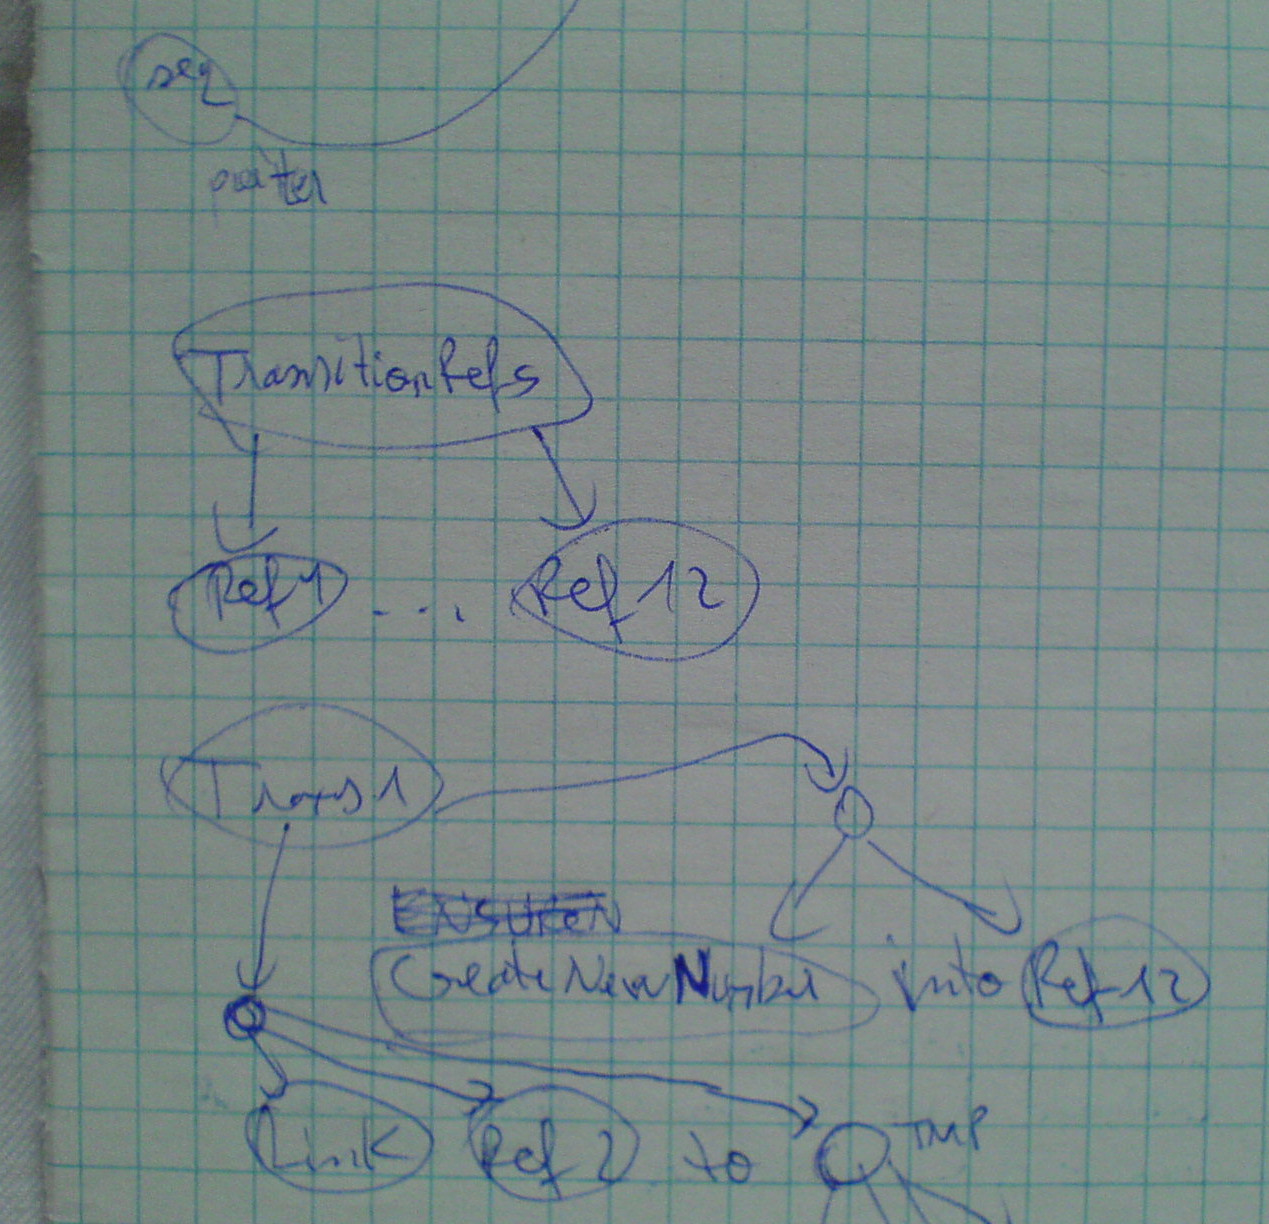 seq
TransitionRefs
Ref 1 ... Ref 12
Trans 1
CreateNewNumber into Ref 12
Link Ref 2 to TMP